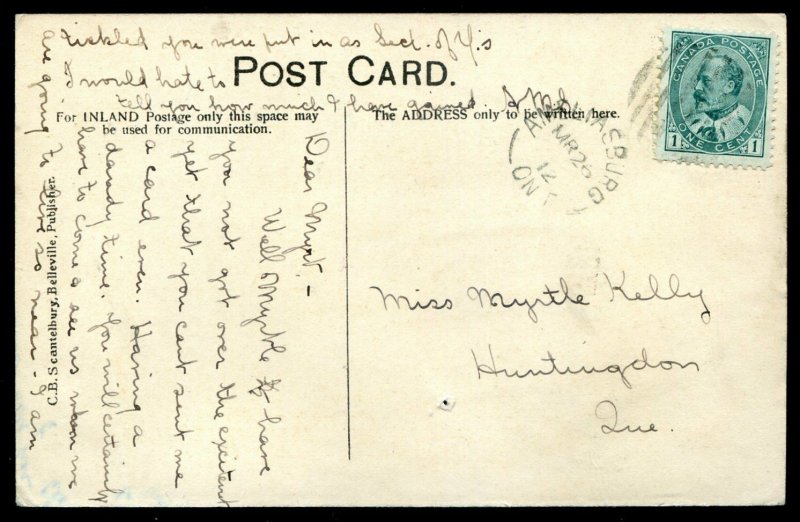 tickled you were put in as Sect. of Y's
I would hate to
POST CARD.
tell you how much I have gained
For INLAND Postage only this space may
be used for communication.
The ADDRESS only to be written here.
CANADA POSTAGE
1 ONE CENT 1
AMELIASBURG
MR 28
12
ONT
Dear Myrt. –
Well Myrtle have
you not got over the excitent
yet that you cant sent me
a card even. Having a
dandy time. You will certainly
have to come & see us when we
are going to live so near – I am
C.B. Scantelbury, Belleville, Publisher.
Miss Myrtle Kelly
Huntingdon
Que.